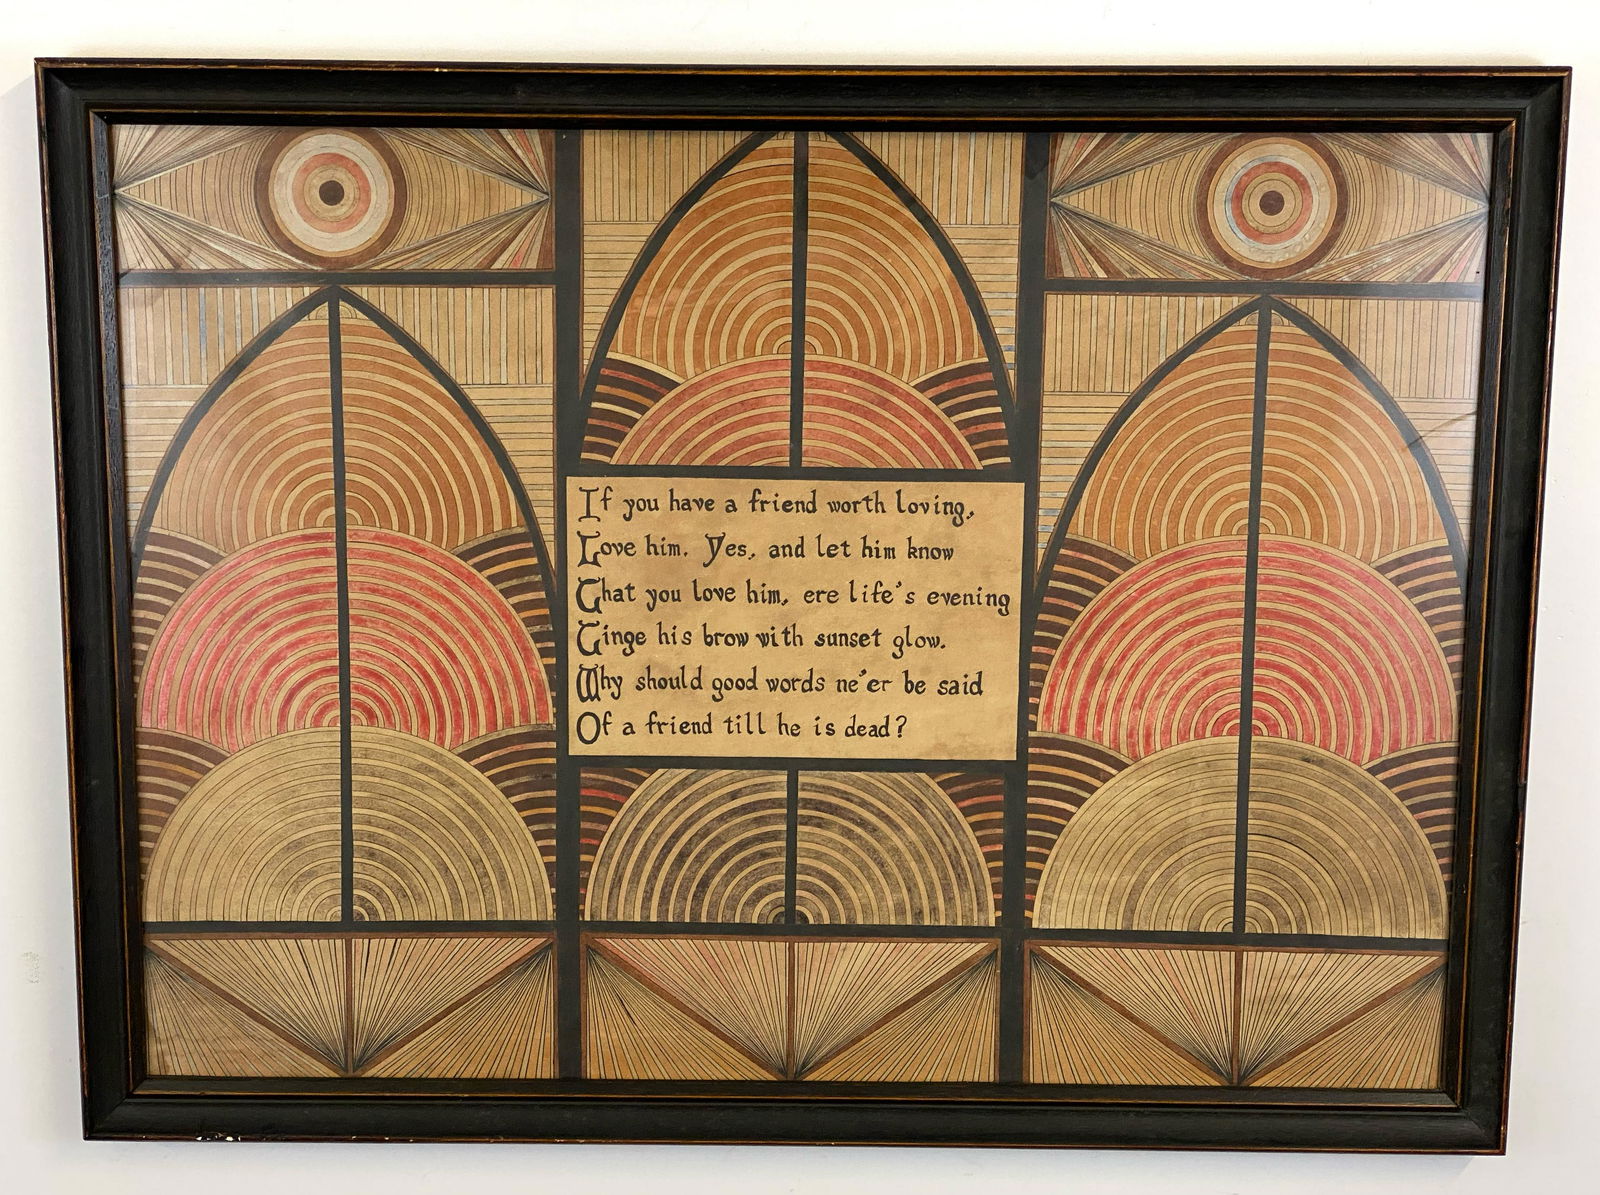 If you have a friend worth loving,
Love him. Yes, and let him know
That you love him, ere life's evening
Tinge his brow with sunset glow.
Why should good words ne'er be said
Of a friend till he is dead?